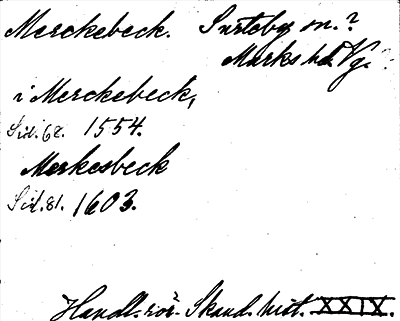 Merckebeck. Surteby sn.?
Marks hd. Vg.
i Merckebeck,
Sid. 68. 1554.
Merkesbeck
Sid. 81. 1603.
Handl. rör. Skand. hist. XXIX.